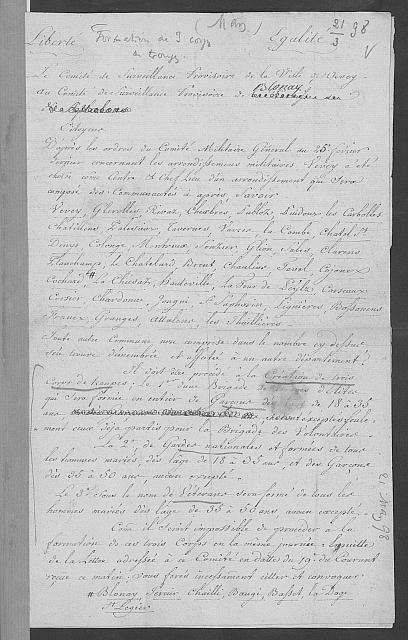 (Mars) 21/3 98
Liberté Formation de 3 corps de troupes Egalité V
Le Comité de Surveillance Provisoire de la Ville de Vevey
au Comité de Surveillance Provisoire de Blonay
Citoyens
D'après les ordres du Comité Militaire Général du 25e février
dernier concernant les arrondissements militaires Vevey a été
choisi come Centre & Chef Lieu d'un arrondissement qui sera
composé des Communautés ci après Savoir
Vevey, Glerolles, Rivaz, Chexbres, Publoz,
Chatillens, Palezieux, Tavernes, La Combe, Chatel St
Denys, Colonge, Montreux, Sonzier, Glion, Sales, Clarens
Planchamp, le Chatelard Brent, Chaulin, Tavel,
Cochard, # La Chiesaz, Hauteville, La Tour de Peylz, Corseaux
Corsier, Chardonne, Jongni, St Saphorin, Lignières, Bossonens
Granges, Attalens, les Thiollieres
Toute autre Commune non comprise dans le nombre cy dessus
sera tenue démembrée et affectée à un autre département.
Il doit être procédé à la Création de trois
Corps de troupes; le 1er d'une Brigade d'Elites
qui sera formée en entier de Garçons dès l'âge de 18 à 35
ans
ment ceux déja partis pour la Brigade des Volontaires.
Le 2e de Gardes nationales et formées de tous
les hommes mariés, dès l'âge de 18 à 35 ans, et des Garçons
dès 35 à 50 ans, aucun excepté.
Le 3e sous le nom de Vétérans sera formé de tous les
hommes mariés dès l'âge de 35 à 50 ans aucun excepté.
Come il seroit impossible de procéder à la
formation de ces trois Corps en la même journée, ensuite
de la Lettre adressée à ce Comité en datte du 19e du Courant
reçue ce matin; vous ferés incessament citter et convoquer
# Blonay, Tercier, Chailli, Baugi, Basset, La Doge
St Légier
21 Mars 98